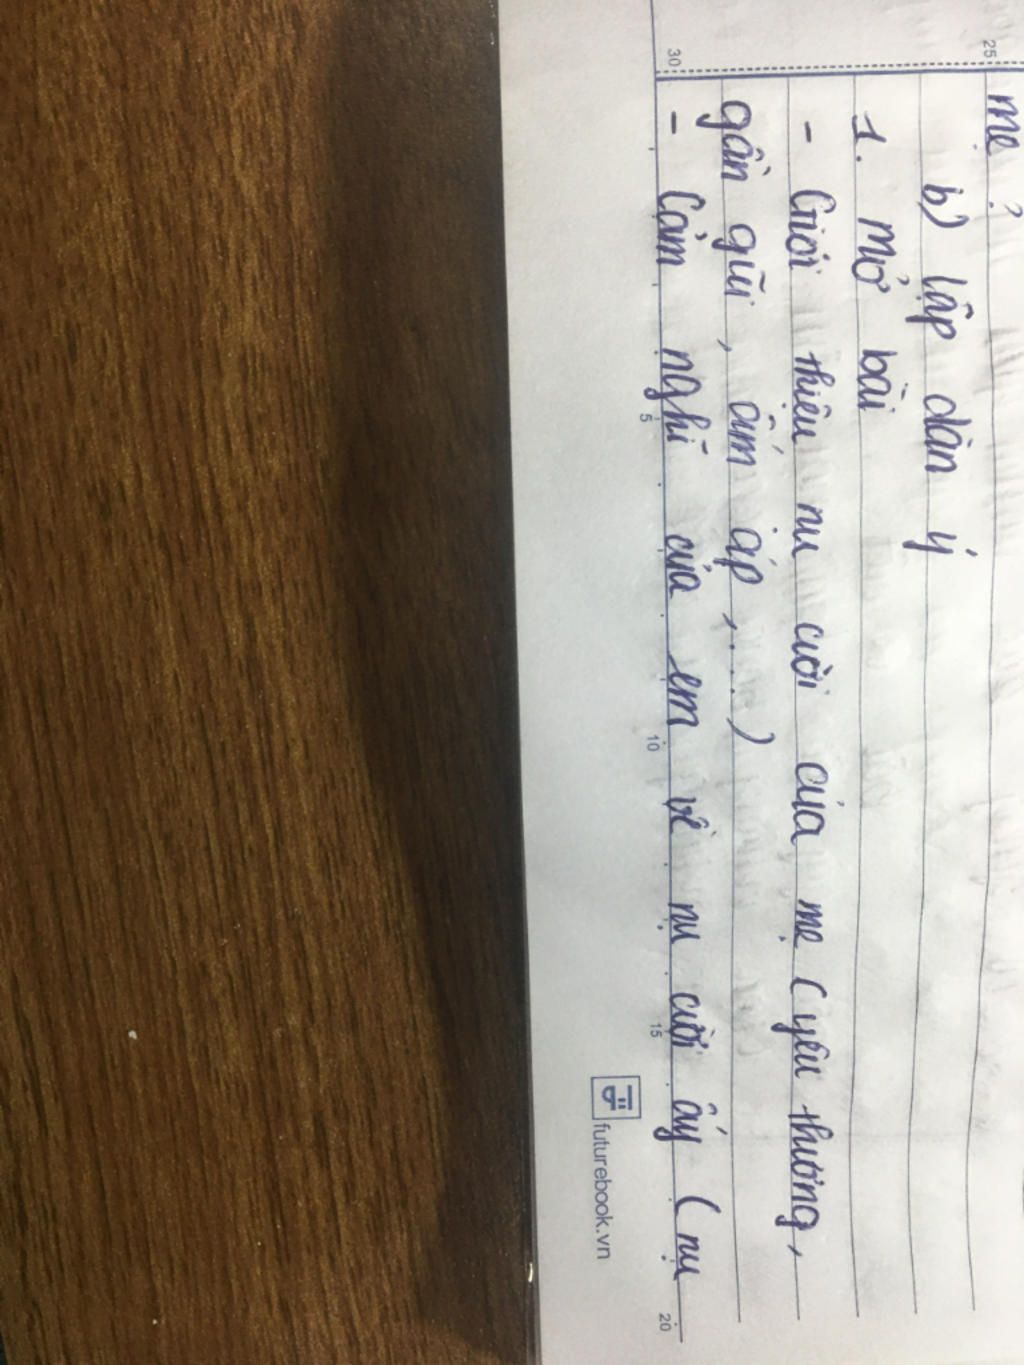 25
mẹ ?
b) lập dàn ý
1. Mở bài
- Giới thiệu nụ cười của mẹ ( yêu thương,
gần gũi, ấm áp,....)
30
- Cảm nghĩ của em về nụ cười ấy ( nụ
5 10 15 20
futurebook.vn